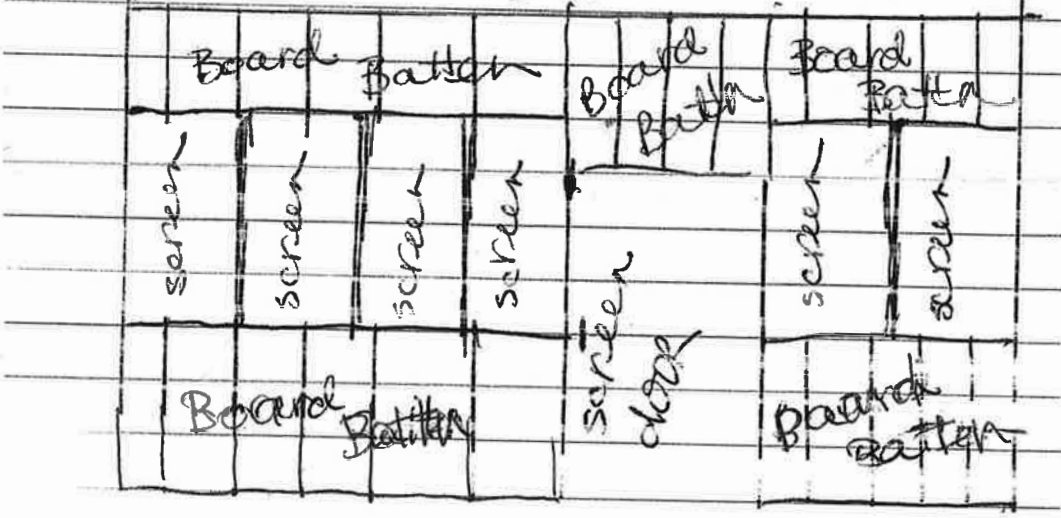 Board Batten
Board
Battn
Board
Battn
screen
screen
screen
screen
screen
door
screen
screen
Board
Batten
Board
Batten